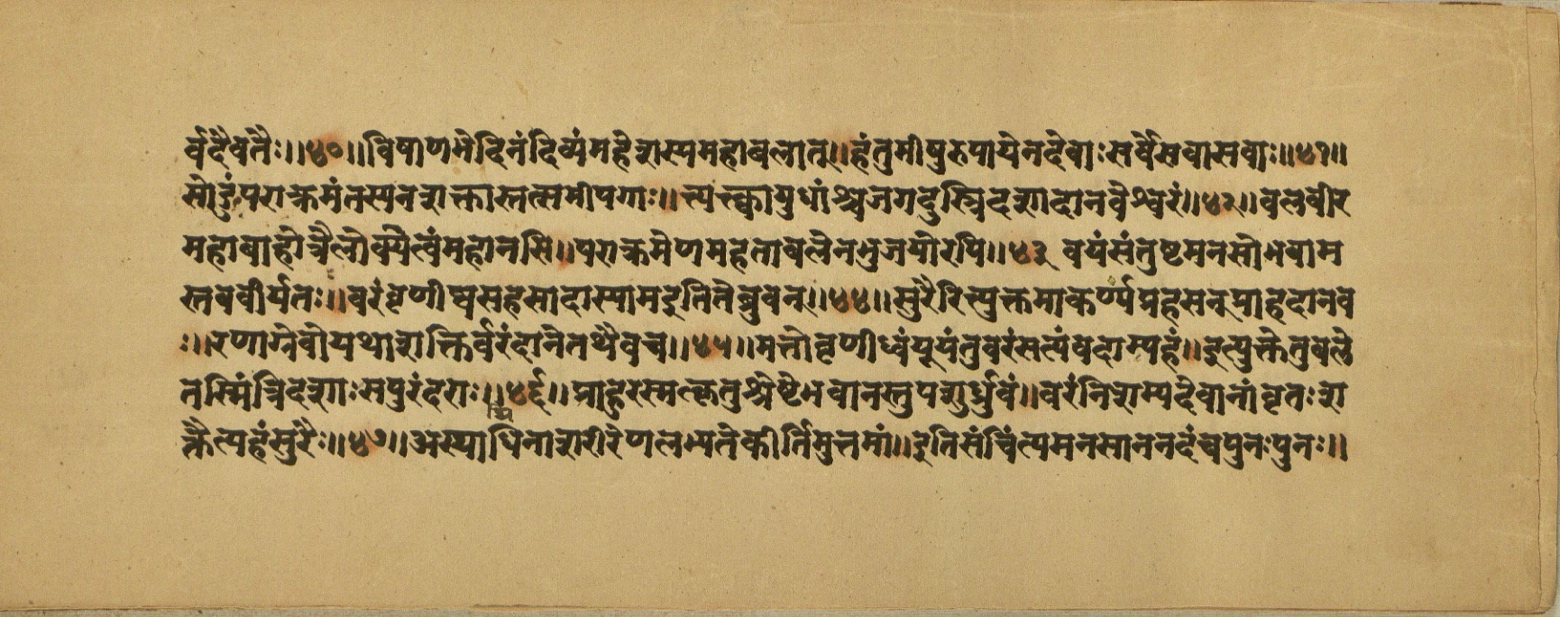 र्वदैवतैः॥४०॥विषाणमेदिनंदिव्यंमहेशस्यमहाबलात्॥हंतुमीषुरुपायेनदेवाःसर्वेसवासवाः॥४१॥
सोढुंपराक्रमंतस्यनशक्तास्तत्समीपगाः॥त्त्यत्त्कायुधांश्चजगदुस्त्रिदशादानवेश्वरं॥४२॥बलवीर
महाबाहोत्रैलोक्येत्वंमहानसि॥पराक्रमेणमहताबलेनभुजयोरपि॥४३वयंसंतुष्टमनसोभवाम
स्तववीर्यतः॥वरंवृणीष्वसहसादास्यामइतितेब्रुवन्॥४४॥सुरैरित्युक्तमाकर्ण्यप्रहसन्प्राहदानव
ः॥रणाग्नेवोयथाशक्तिर्वरंदानेतथैवच॥४५॥मत्तोवृणीध्वंयूयंतुवरंसत्यंवदाम्यहं॥इत्युक्तेतुबले
तस्मिंत्रिदशाःसपुरंदराः॥४६॥प्राहुरस्मत्क्रतुश्रेष्टेभवानस्तुपशुर्ध्रुवं॥वरंनिशम्यदेवानांवृतःश
क्तैत्यहंसुरैः॥४७॥अस्थाधिनाशरीरेणलभ्यतेकीर्तिमुत्तमां॥इतिसंचिंत्यमनसाननदंचपुनःपुनः॥